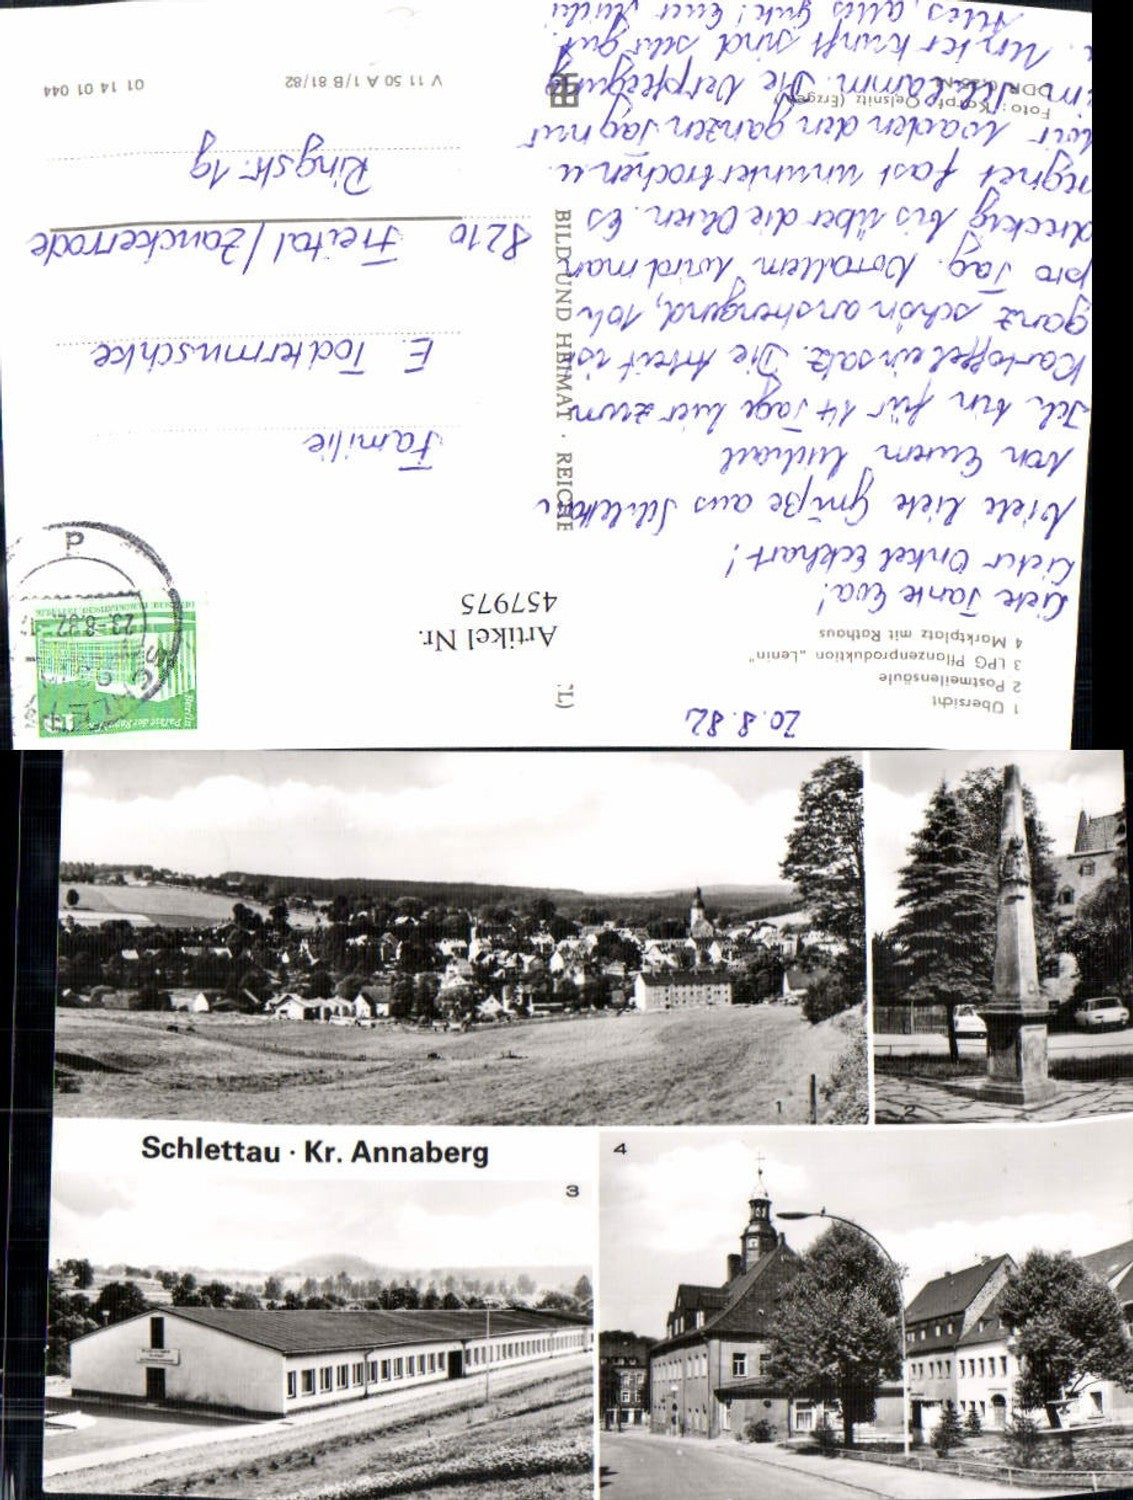 20.8.82
1 Übersicht
2 Postmeilensäule
3 LPG Pflanzenproduktion „Lenin"
4 Marktplatz mit Rathaus
Liebe Tante Eva!
Lieber Onkel Eckhart!
Viele liebe Grüße aus Schlettau
von Eurem Michael
Ich bin für 14 Tage hier zum
Kartoffeleinsatz. Die Arbeit ist
ganz schön anstrengend, 10h
pro Tag. Vorallem wird man
dreckig bis über die Ohren. Es
regnet fast ununterbrochen u.
wir waden den ganzen Tag nur
im Schlamm. Die Verpflegung
u. Unterkunft sind sehr gut.
Alles, alles gute! Euer
Foto: Karpf, Oelsnitz (Erzgeb.)
DDR 0,25
BILD UND HEIMAT · REICHE
Artikel Nr.
457975
Berlin
Palast der Republik
10
23.-8.82
d
Familie
E. Todtermuschke
8210 Freital/Zauckerode
Ringstr. 19
V 11 50 A 1/B 81/82
01 14 01 044
1
2
Schlettau · Kr. Annaberg
3
4